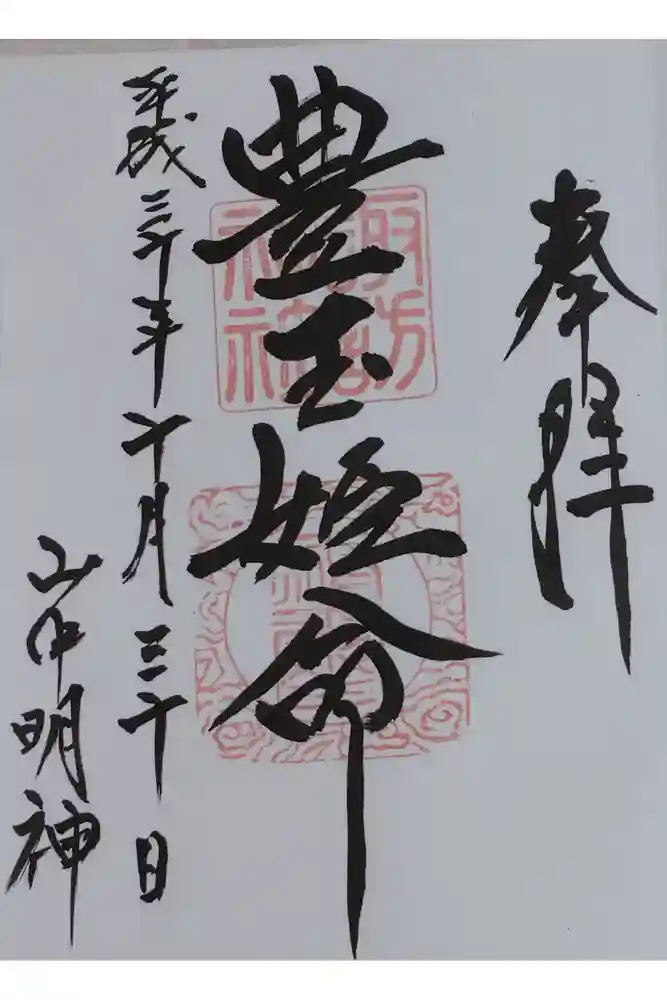 奉拝
豊玉姫命
諏訪
神社
平成三十年十月三十日
山中明神